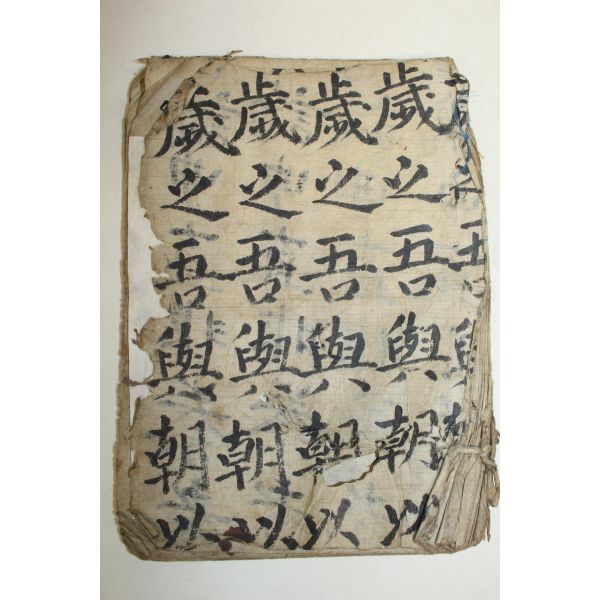 歲之吾與朝
歲之吾與朝以
歲之吾與朝以
歲之吾與朝以
歲之吾與朝以